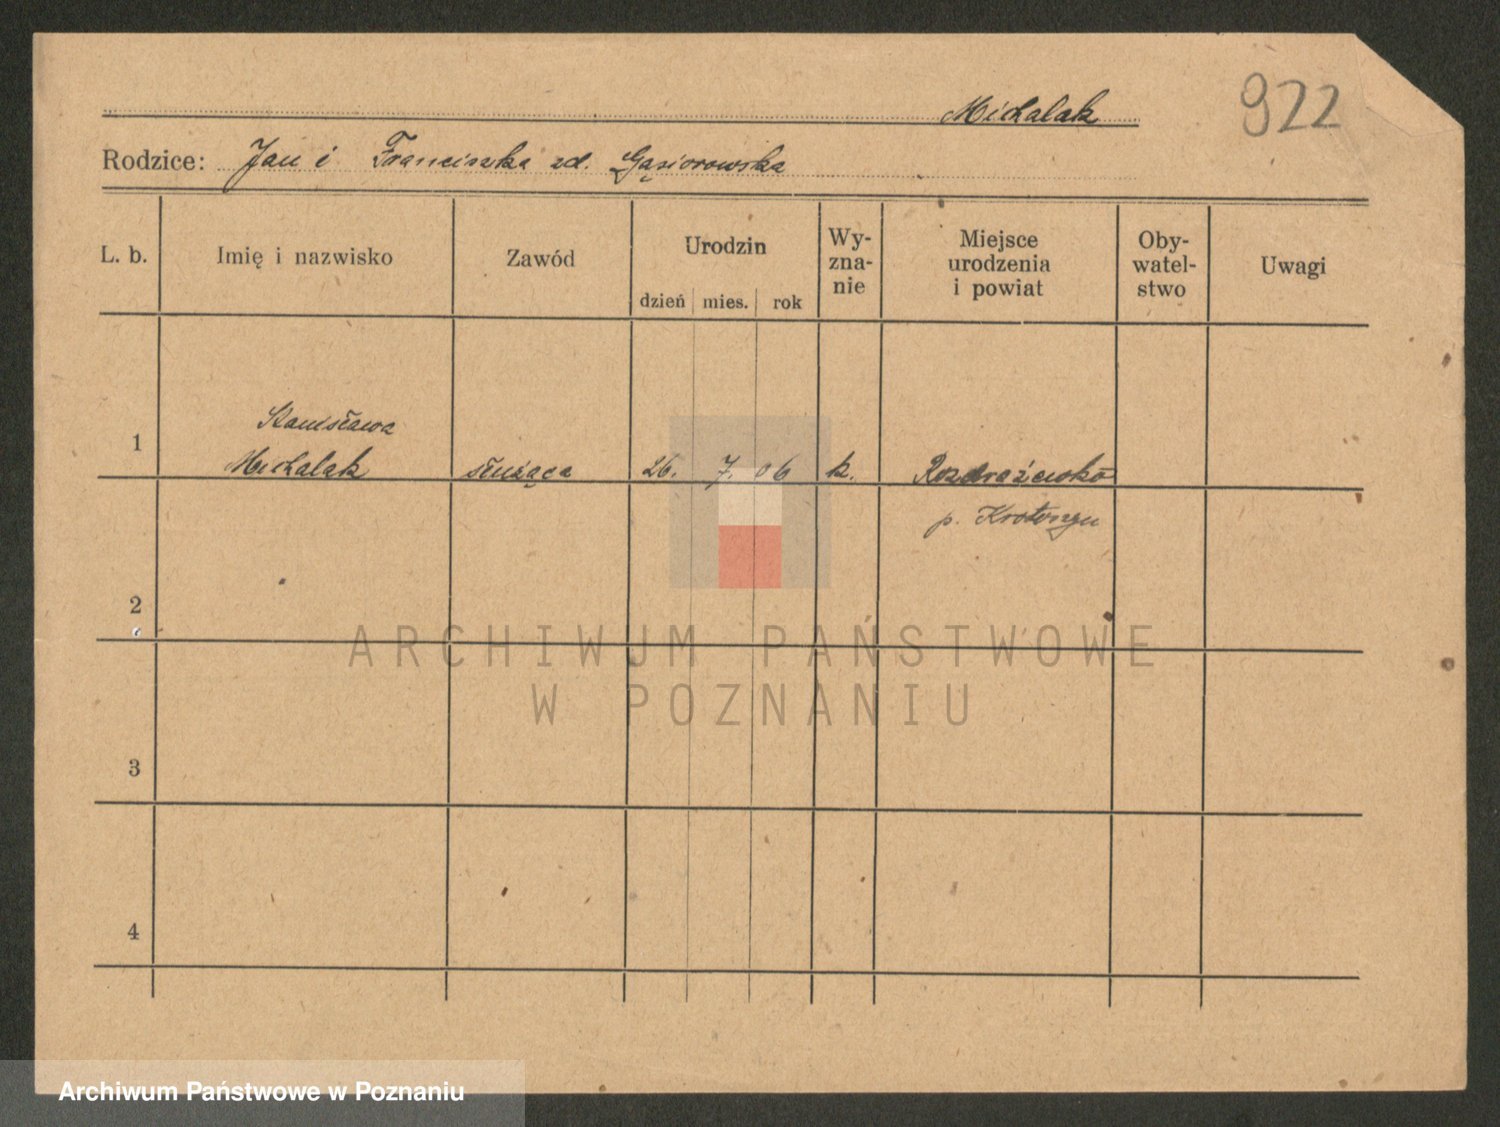 Michalak
922
Rodzice: Jan i Franciszka zd. Gąsiorowska
L. b.
Imię i nazwisko
Zawód
Urodzin
dzień mies. rok
Wy-
zna-
nie
Miejsce
urodzenia
i powiat
Oby-
watel-
stwo
Uwagi
1
Stanisława
Michalak
służąca
26. 7. 06
k.
p.
2
ARCHIWUM PAŃSTWOWE
W POZNANIU
3
4
Archiwum Państwowe w Poznaniu